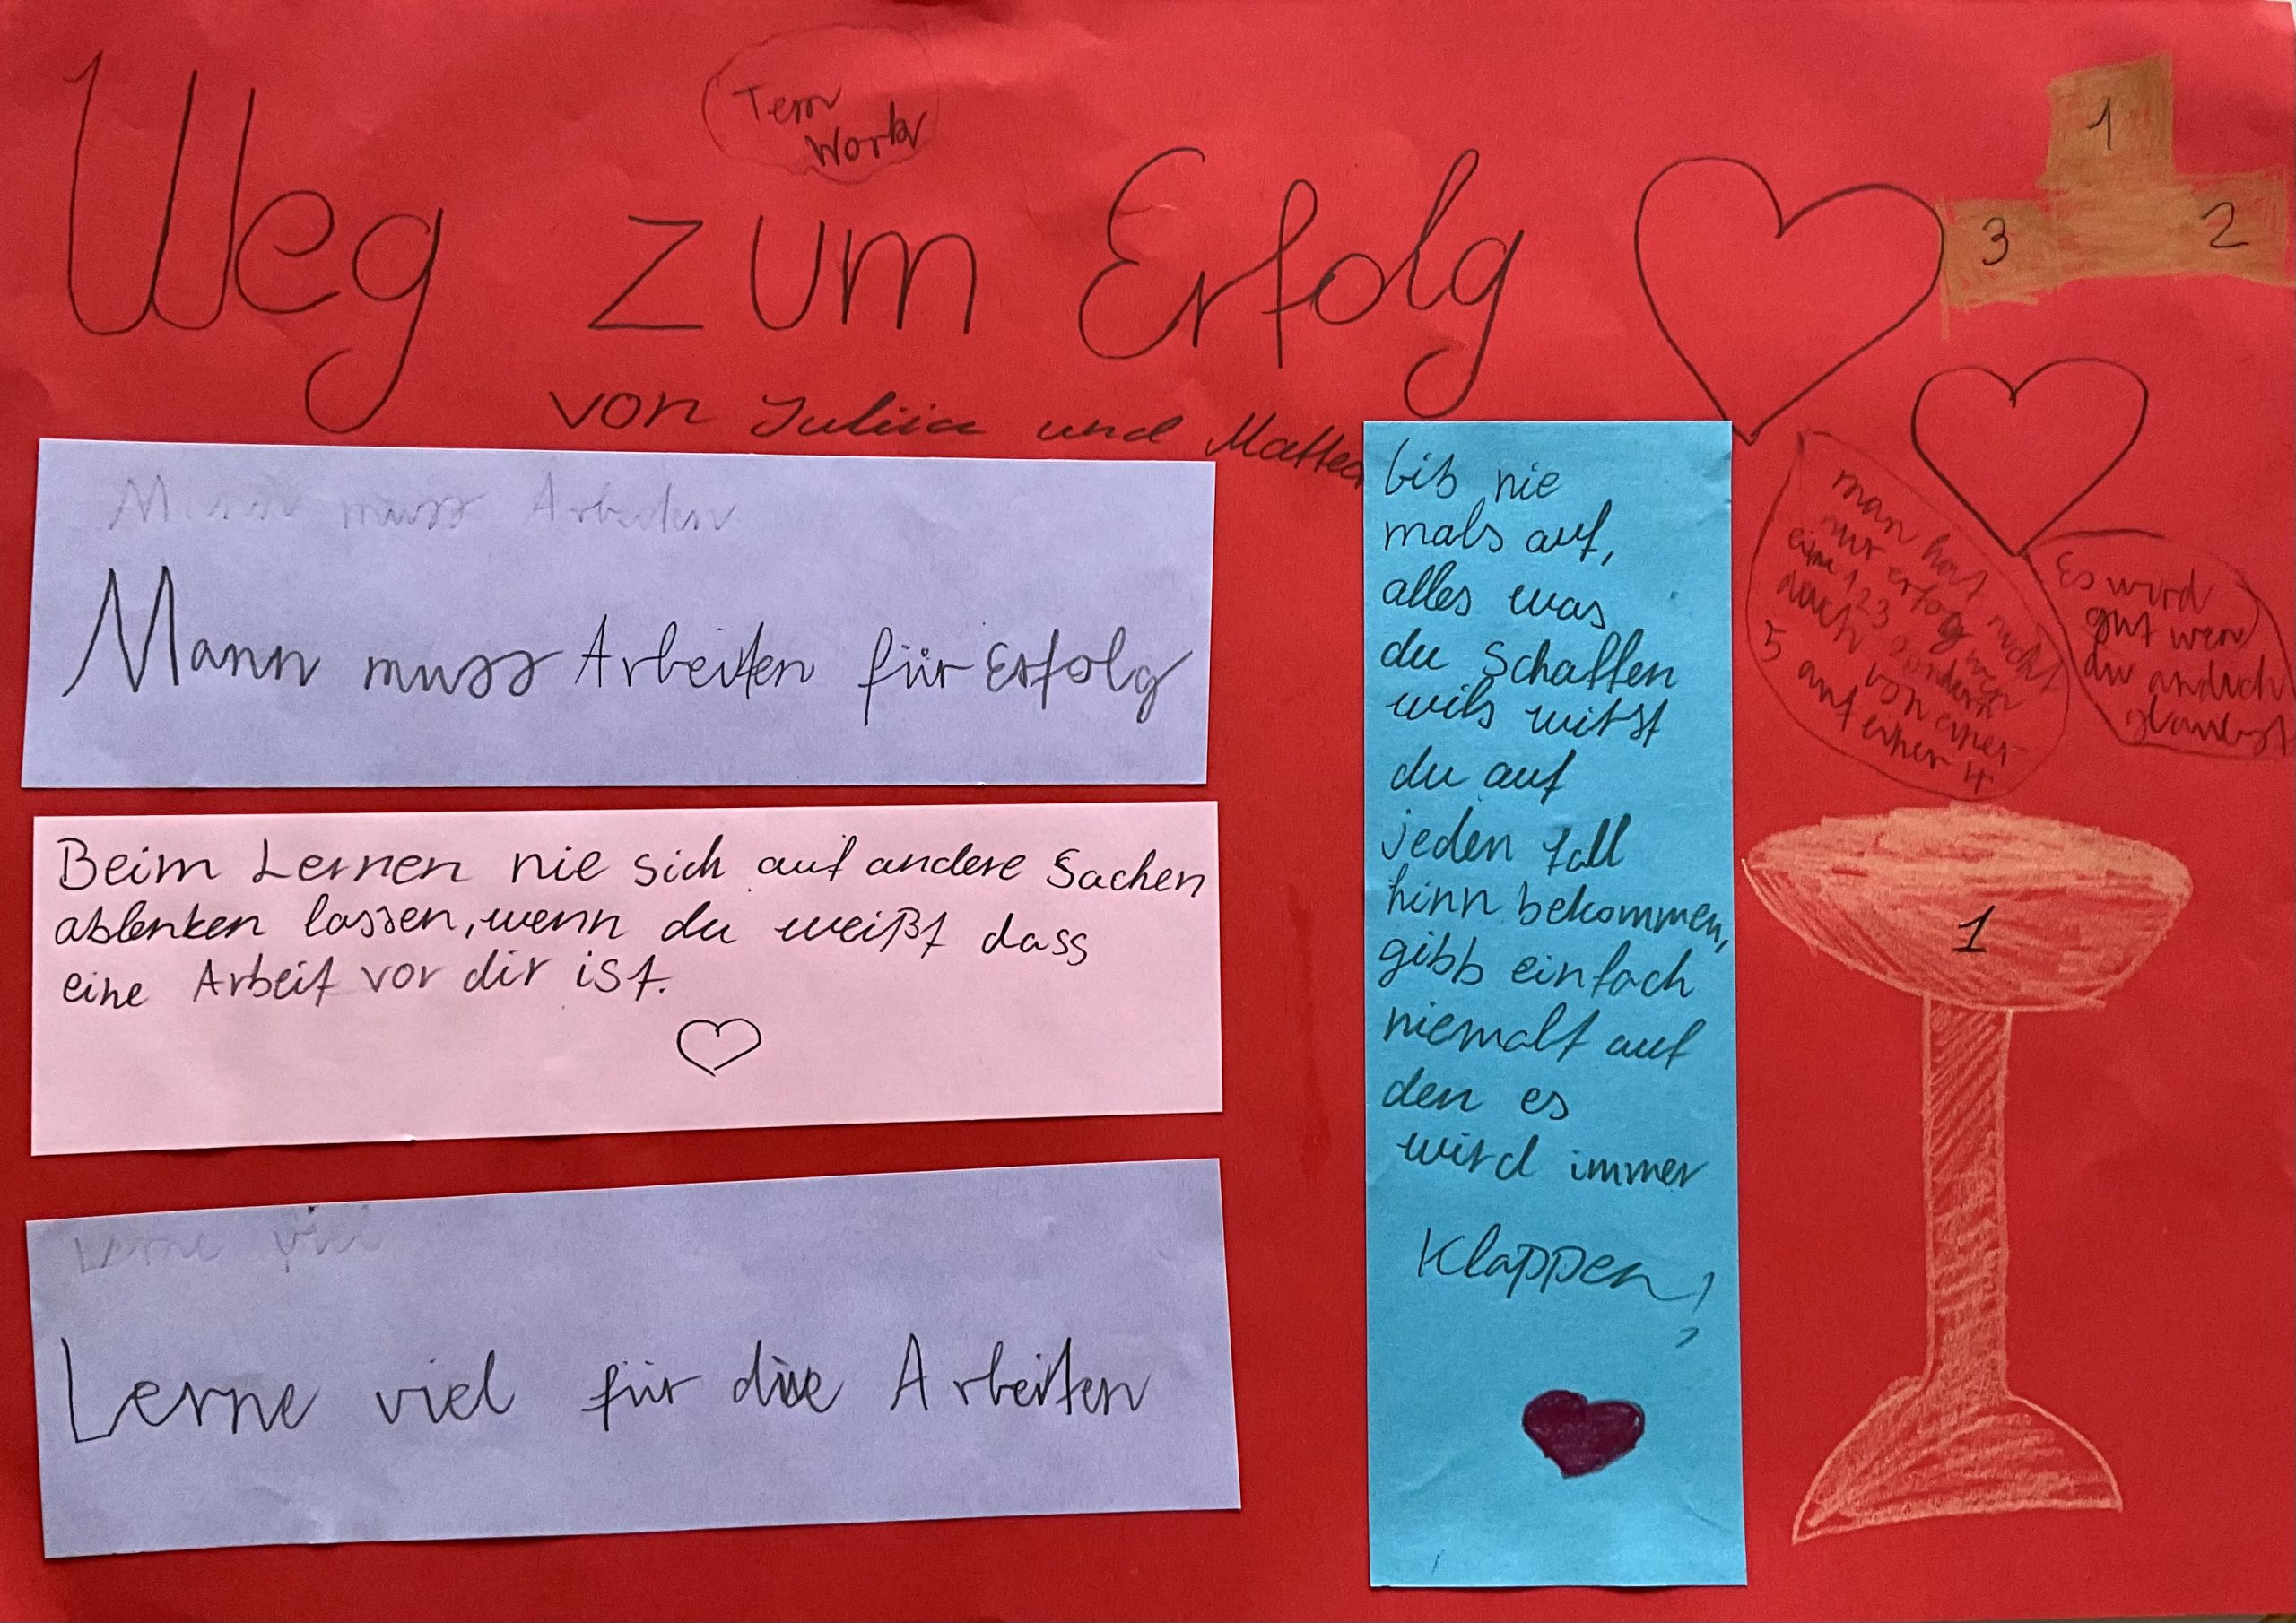 Tem
Work
Weg zum Erfolg
von Juliia und Matteo
1
3 2
Mann muss Arbeiten
Mann muss Arbeiten für Erfolg
Beim Lernen nie sich auf andere Sachen
ablenken lassen, wenn du weißt dass
eine Arbeit vor dir ist.
Lerne viel
Lerne viel für die Arbeiten
bib nie
mals auf,
alles was
du schaffen
wils wirst
du auf
jeden fall
hinn bekommen,
gibb einfach
niemalt auf
den es
wird immer
Klappen!
man hat nicht
nur erfolg wen
eine 1 2 3 sondern
auch von einer
5 auf einer 4
Es wird
gut wen
du andich
glaubst
1